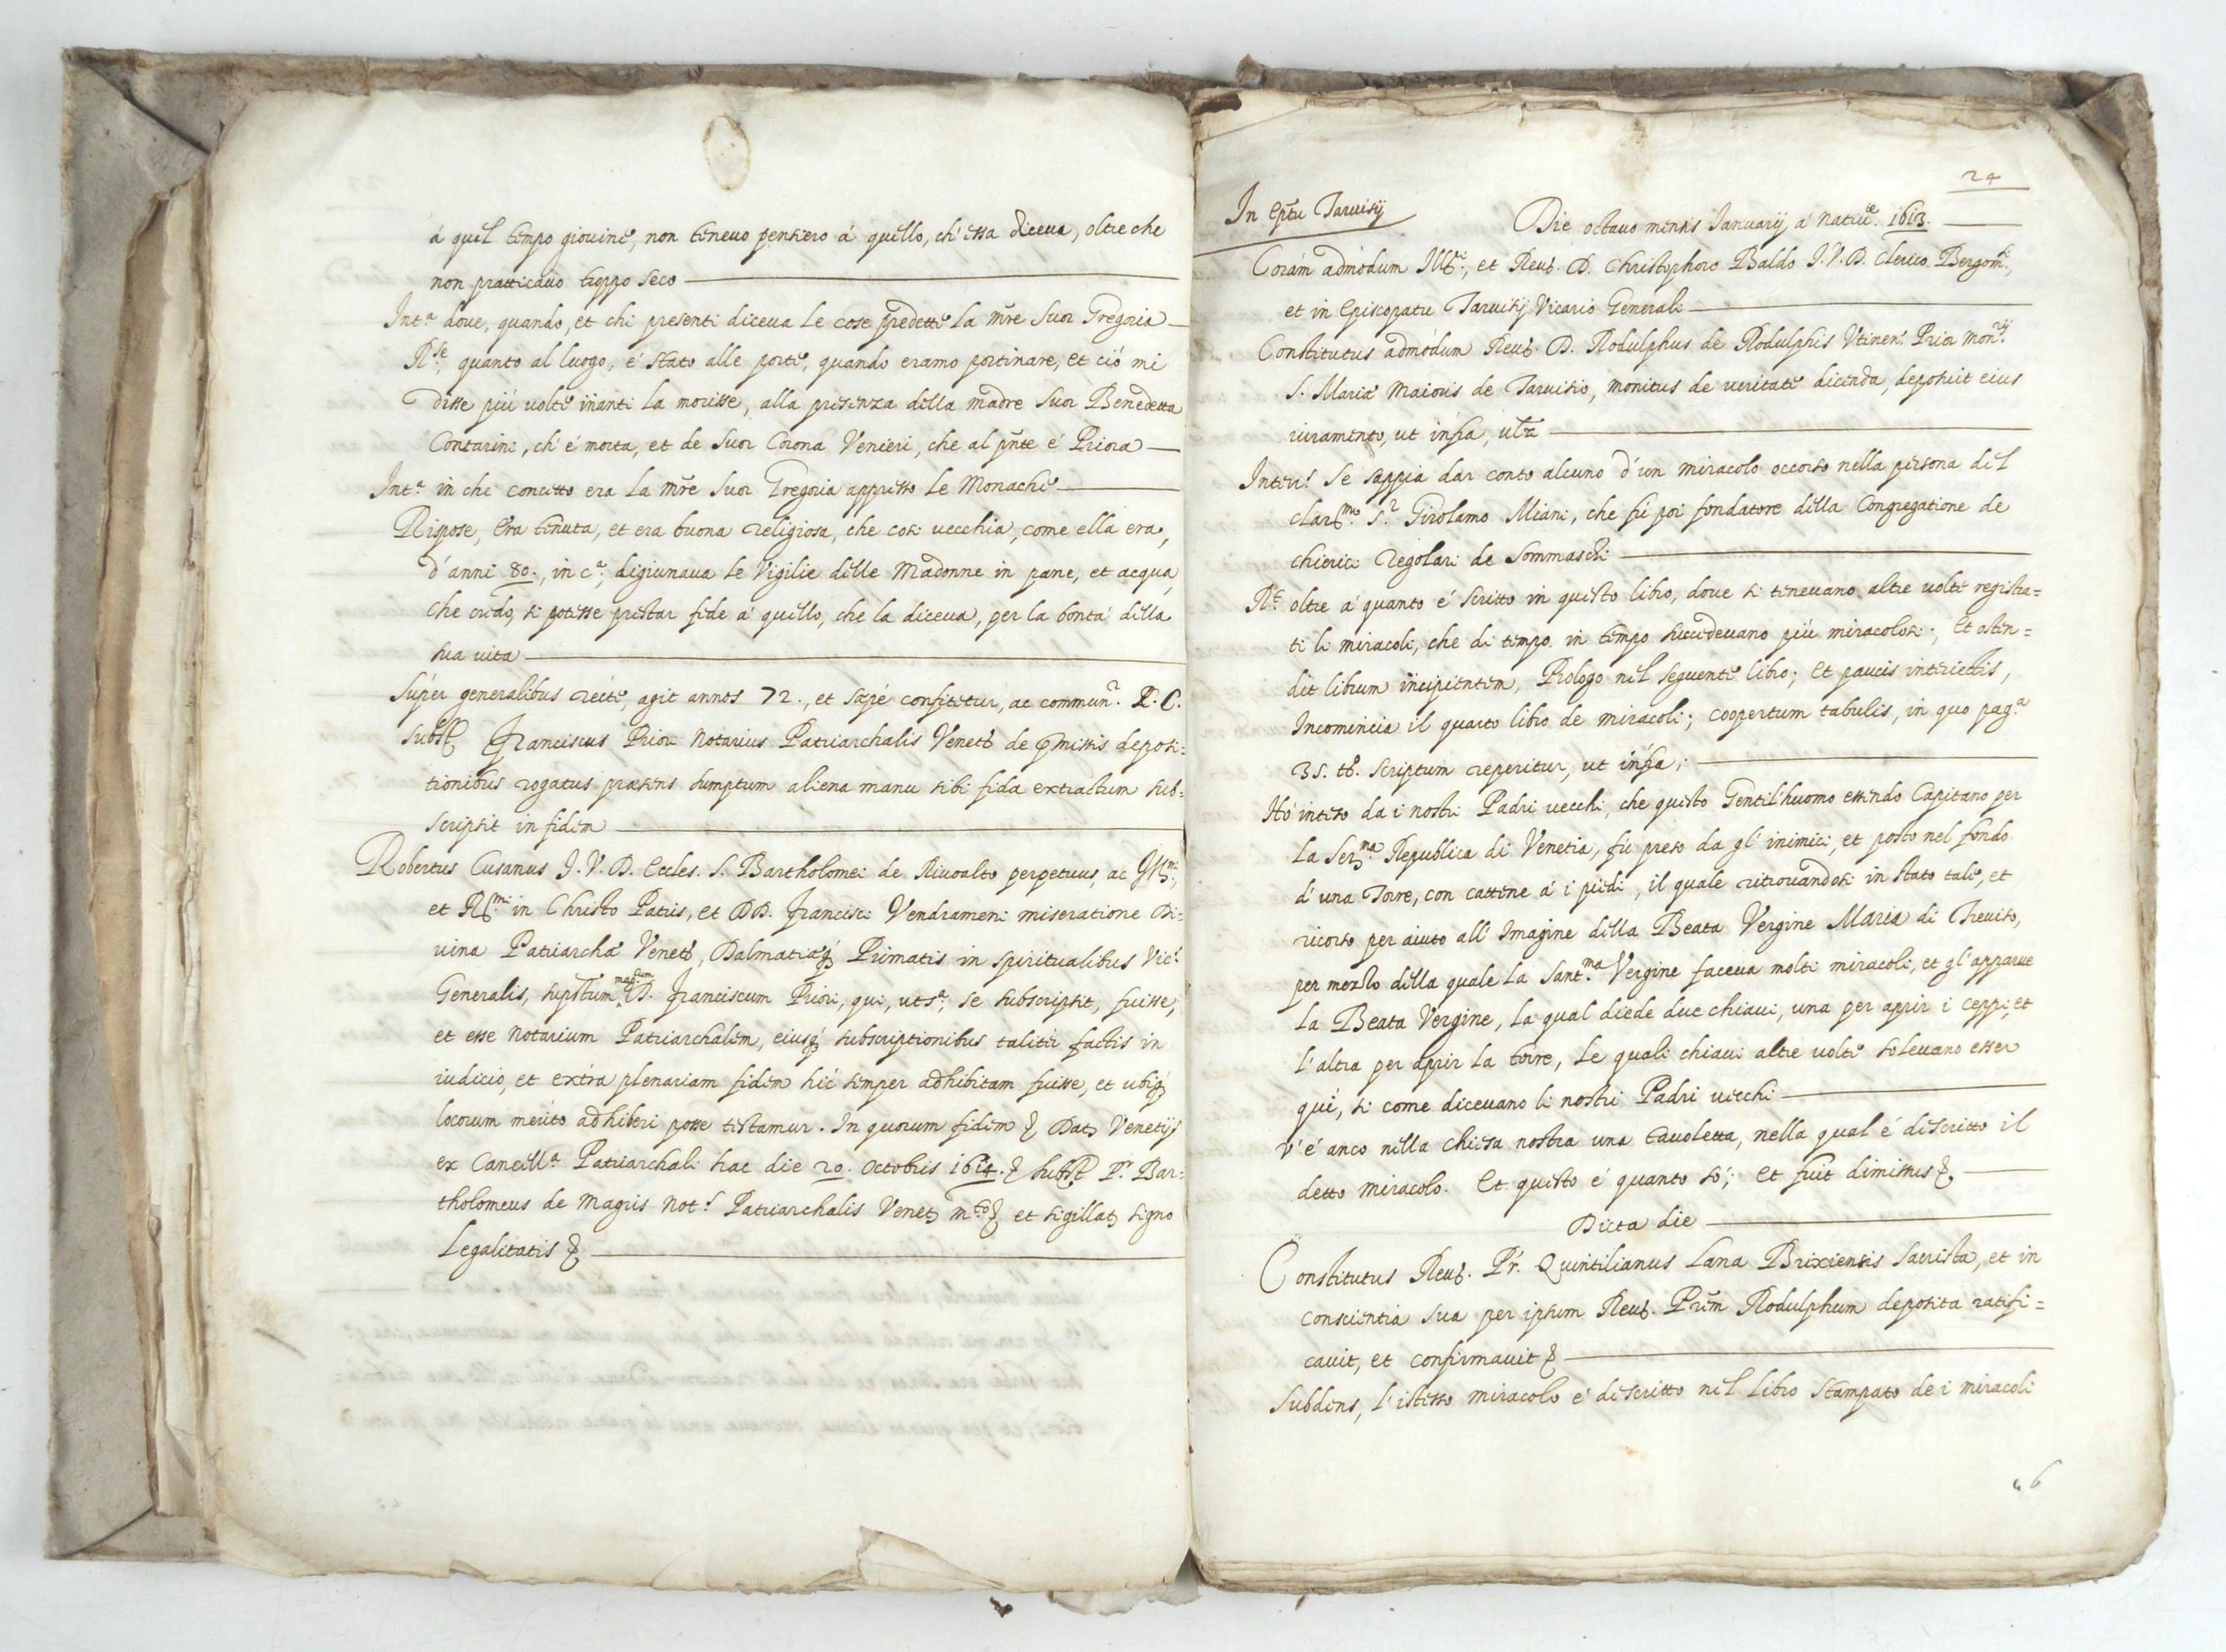 á quel tempo giouine, non teneuo pensiero á quello, ch'essa diceua, oltre che
non pratticauo troppo seco
Int.ª doue, quando, et chi presenti diceua le cose predette la mře Suor Gregoria
R.se quanto al luogo, é stato alle porte, quando eramo portinare, et ció mi
disse piú uolte inanti la morisse, alla presenza della madre Suor Benedetta
Contarini, ch'é morta, et de Suor Corona Venieri, che al pñte é Priora
Int.ª in che concetto era la mře Suor Gregoria appresso le Monache
Rispose, Era tenuta, et era buona religiosa, che cosi uecchia, come ella era,
d'anni 80., in c.ª, digiunaua le Vigilie delle Madonne in pane, et acqua,
che credo, si potesse prestar fede á quello, che la diceua, per la bontá della
sua uita
Super generalibus recte, agit annos 72., et sæpé confitetur, ac commun.r R. C.
Franciscus Prior Notarius Patriarchalis Venet de p̃missis deposi=
tionibus rogatus præsens sumptum aliena manu sibi fida extractum sub=
scripsit in fidem
Robertus Cusanus J. V. D. Eccles. S. Bartholomei de Riuoalto perpetuus, ac Ill.mi,
et R.mi in Christo Patris, et DD. Francisci Vendrameni miseratione Di=
uina Patriarchæ Venet, Dalmatiæq; Primatis in spiritualibus Vic.s
Generalis, supstum, D. Franciscum Priori, qui, ut s.ª, se subscripsit, fuisse,
et esse Notarium Patriarchalem, eiusq; subscriptionibus taliter factis in
iudicio, et extra plenariam fidem hic semper adhibitam fuisse, et ubiq;
locorum merito adhiberi posse testamur. In quorum fidem & Dat Venetijs
ex Cancell.ª Patriarchali hac die 20. Octobris 1614. & P.r Bar=
tholomeus de Magris Not.s Patriarchalis Venet m.to & et sigillat signo
Legalitatis &
24
In Ep̃tu Taruisij
Die octauo mensis Januarij, á natiu.te 1613.
Coram admodum Ill.re, et Reu. D. Christophoro Baldo J. V. D. Clerico Bergom.e,
et in Episcopatu Taruisij Vicario Generali
Constitutus admodum Reu. D. Rodulphus de Rodulphis Vtinen. Prior Mon.rij
S. Mariæ Maioris de Taruisio, monitus de ueritate dicenda, deposuit eius
iuramento, ut infra, ul̃a
Inter.s se sappia dar conto alcuno d'un miracolo occorso nella persona del
clar.mo S.r Girolamo Miani, che fú poi fondatore della Congregatione de
chierici Regolari de Sommaschi
R.t oltre á quanto é scritto in questo libro, doue si teneuano altre uolte registra=
ti li miracoli, che di tempo in tempo succedeuano piú miracolosi; Et osten=
dit librum incipientem, Prologo nel seguente libro; Et paucis interiectis,
Incomincia il quarto libro de miracoli; coopertum tabulis, in quo pag.ª
35. tº. scriptum reperitur, ut infra;
Hó inteso da i nostri Padri uecchi, che questo Gentil'huomo essendo Capitano per
la Ser.ma Republica di Venetia, fú preso da gl'inimici, et posto nel fondo
d'una Torre, con cattene á i piedi, il quale ritrouandosi in stato tale, et
ricorso per aiuto all'Imagine della Beata Vergine Maria di Treuiso,
per mezzo della quale la Sant.ma Vergine faceua molti miracoli, et gl'apparue
la Beata Vergine, la qual diede due chiaui, una per aprir i ceppi, et
l'altra per aprir la torre, le quali chiaui altre uolte soleuano esser
quí, si come diceuano li nostri Padri uecchi
V'é anco nella chiesa nostra una tauoletta, nella qual é descritto il
detto miracolo. Et questo é quanto só; Et fuit dimissus &
Dicta die
Constitutus Reu. Pr. Quintilianus Lana Brixiensis sacrista, et in
conscientia sua per ipsum Reu. Prẽm Rodulphum deposita ratifi=
cauit, et confirmauit &
Subdens, l'istesso miracolo é descritto nel libro stampato de i miracoli